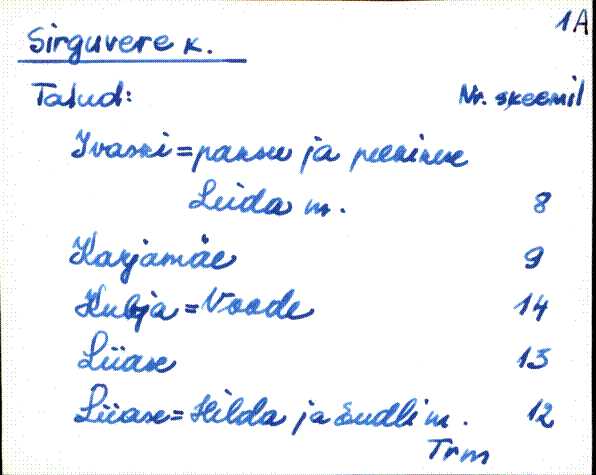 1A
Sirguvere k.
Talud: Nr. skeemil
Ivaski = paksu ja peenikese
Leida m. 8
Karjamäe 9
Kubja = Voode 14
Liiase 13
Liiase = Hilda ja m. 12
Trm